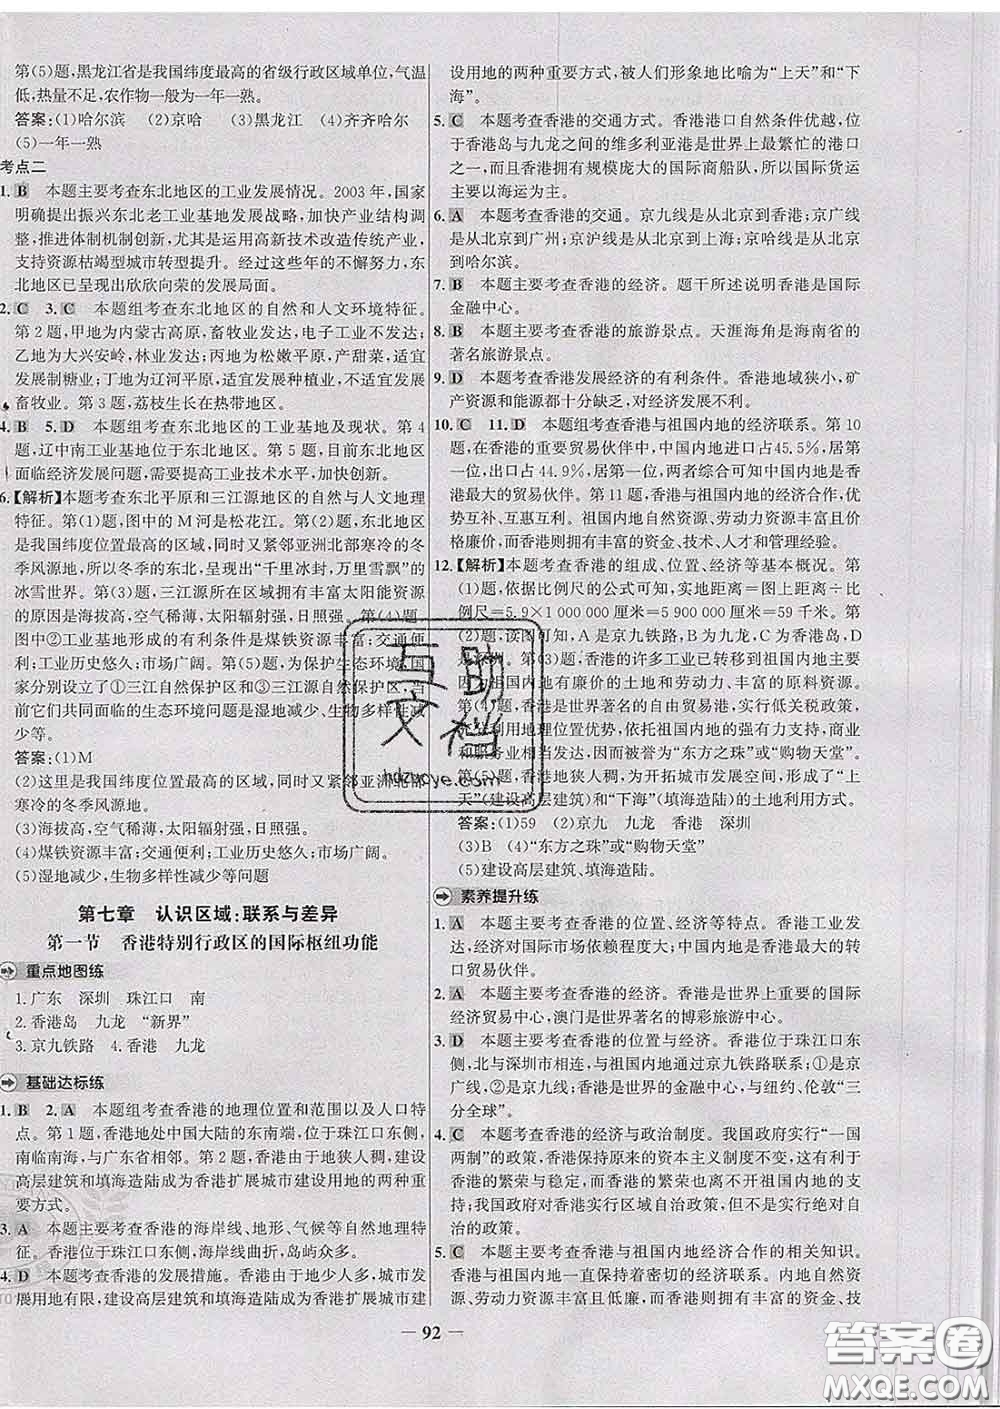 第(5)题,黑龙江省是我国纬度最高的省级行政区域单位,气温
低,热量不足,农作物一般为一年一熟。
答案:(1)哈尔滨 (2)京哈 (3)黑龙江 (4)齐齐哈尔
(5)一年一熟
考点二
1. B 本题主要考查东北地区的工业发展情况。2003年,国家
明确提出振兴东北老工业基地发展战略,加快产业结构调
整,推进体制机制创新,尤其是运用高新技术改造传统产业,
支持资源枯竭型城市转型提升。经过这些年的不懈努力,东
北地区已呈现出欣欣向荣的发展局面。
2. C 3. C 本题组考查东北地区的自然和人文环境特征。
第2题,甲地为内蒙古高原,畜牧业发达,电子工业不发达;
乙地为大兴安岭,林业发达;丙地为松嫩平原,产甜菜,适宜
发展制糖业;丁地为辽河平原,适宜发展种植业,不适宜发展
畜牧业。第3题,荔枝生长在热带地区。
4. B 5. D 本题组考查东北地区的工业基地及现状。第4
题,辽中南工业基地位于东北地区。第5题,目前东北地区
面临经济发展问题,需要提高工业技术水平,加快创新。
6.【解析】本题考查东北平原和三江源地区的自然与人文地理
特征。第(1)题,图中的M河是松花江。第(2)题,东北地区
是我国纬度位置最高的区域,同时又紧邻亚洲北部寒冷的冬
季风源地,所以冬季的东北,呈现出“千里冰封,万里雪飘”的
冰雪世界。第(3)题,三江源地区拥有丰富太阳能资源
的原因是海拔高,空气稀薄,太阳辐射强,日照强。第(4)题,
图中②工业基地形成的有利条件是煤铁资源丰富;交通便
利;工业历史悠久;市场广阔。第(5)题,为保护生态环境,国
家分别设立了①三江自然保护区和③三江源自然保护区,目
前它们共同面临的生态环境问题是湿地减少、生物多样性减
少等。
答案:(1)M
(2)这里是我国纬度位置最高的区域,同时又紧邻亚洲北部
寒冷的冬季风源地。
(3)海拔高,空气稀薄,太阳辐射强,日照强。
(4)煤铁资源丰富;交通便利;工业历史悠久;市场广阔。
(5)湿地减少,生物多样性减少等问题
第七章 认识区域:联系与差异
第一节 香港特别行政区的国际枢纽功能
重点地图练
1.广东 深圳 珠江口 南
2.香港岛 九龙 “新界”
3.京九铁路 4.香港 九龙
基础达标练
1. B 2. A 本题组考查香港的地理位置和范围以及人口特
点。第1题,香港地处中国大陆的东南端,位于珠江口东侧,
南临南海,与广东省相邻。第2题,香港地狭人稠,建设
高层建筑和填海造陆成为香港扩展城市建设用地的两种重
要方式。
3. A 本题主要考查香港的海岸线、地形、气候等自然地理特
征。香港位于珠江口东侧,海岸线曲折,岛屿众多。
4. D 本题考查香港的发展措施。香港由于地少人多,城市发
展用地有限,建设高层建筑和填海造陆成为香港扩展城市建
设用地的两种重要方式,被人们形象地比喻为“上天”和“下
海”。
5. C 本题考查香港的交通方式。香港港口自然条件优越,位
于香港岛与九龙半岛之间的维多利亚港是世界上最繁忙的港口
之一,而且香港拥有规模庞大的国际商船队,所以国际货运
主要以海运为主。
6. A 本题考查香港的交通。京九线是从北京到香港;京广线
是从北京到广州;京沪线是从北京到上海;京哈线是从北京
到哈尔滨。
7. B 本题考查香港的经济。题干所述说明香港是国际
金融中心。
8. B 本题主要考查香港的旅游景点。天涯海角是海南省的
著名旅游景点。
9. D 本题考查香港发展经济的有利条件。香港地域狭小,矿
产资源和能源都十分缺乏,对经济发展不利。
10. C 11. D 本题组考查香港与祖国内地的经济联系。第10
题,在香港的重要贸易伙伴中,中国内地进口占45.5%,居
第一位,出口占44.9%,居第一位,两者综合可知中国内地是香
港最大的贸易伙伴。第11题,香港与祖国内地的经济合作,优
势互补、互惠互利。祖国内地自然资源、劳动力资源丰富且价
格廉价,而香港则拥有丰富的资金、技术、人才和管理经验。
12.【解析】本题考查香港的组成、位置、经济等基本概况。第
(1)题,依据比例尺的公式可知,实地距离=图上距离÷比
例尺=5.9×1 000 000厘米=5 900 000厘米=59千米。第
(2)题,读图可知,A是京九铁路,B为九龙,C为香港岛,D
是深圳。第(3)题,香港的许多工业已转移到祖国内地,因为祖
国内地有廉价的土地和劳动力、丰富的原料资源。
第(4)题,香港是世界上著名的自由贸易港,实行低关税政策,
充分利用地理位置优势,依托祖国内地的强有力支持,商
业和服务业相当发达,因而被誉为“东方之珠”或“购物天堂”。
第(5)题,香港地狭人稠,为开拓城市发展空间,形成了“上
天”(建设高层建筑)和“下海”(填海造陆)的土地利用方式。
答案:(1)59 (2)京九 九龙 香港 深圳
(3)B (4)“东方之珠”或“购物天堂”
(5)建设高层建筑、填海造陆。
素养提升练
1. A 本题主要考查香港的位置、经济等特点。香港工业发
达,经济对国际市场依赖程度大;中国内地是香港最大的转
口贸易伙伴。
2. A 本题主要考查香港的经济。香港是世界上重要的国际
经济贸易中心,澳门是世界著名的博彩旅游中心。
3. D 本题主要考查香港的位置与经济。香港位于珠江口东
侧,北与深圳市相连,与祖国内地通过京九铁路联系;①是京
广线,②是京九线;香港是世界的金融中心,与纽约、伦敦“三
分全球”。
4. C 本题考查香港的经济与政治制度。我国政府实行“一国
两制”的政策,香港保持原来的资本主义制度不变,这有利于
香港的繁荣与稳定,而香港的繁荣也离不开祖国内地的支
持。我国政府对香港实行区域自治政策,但不是绝对自
治的政策。
5. C 本题主要考查香港与祖国内地经济合作的相关知识。
香港与祖国内地一直保持着密切的经济联系。祖国内地自然
资源、劳动力资源丰富且低廉,而香港则拥有丰富的资金、技
— 92 —
互助
文档
hdzuoye.com
答案圈
MXQE.COM